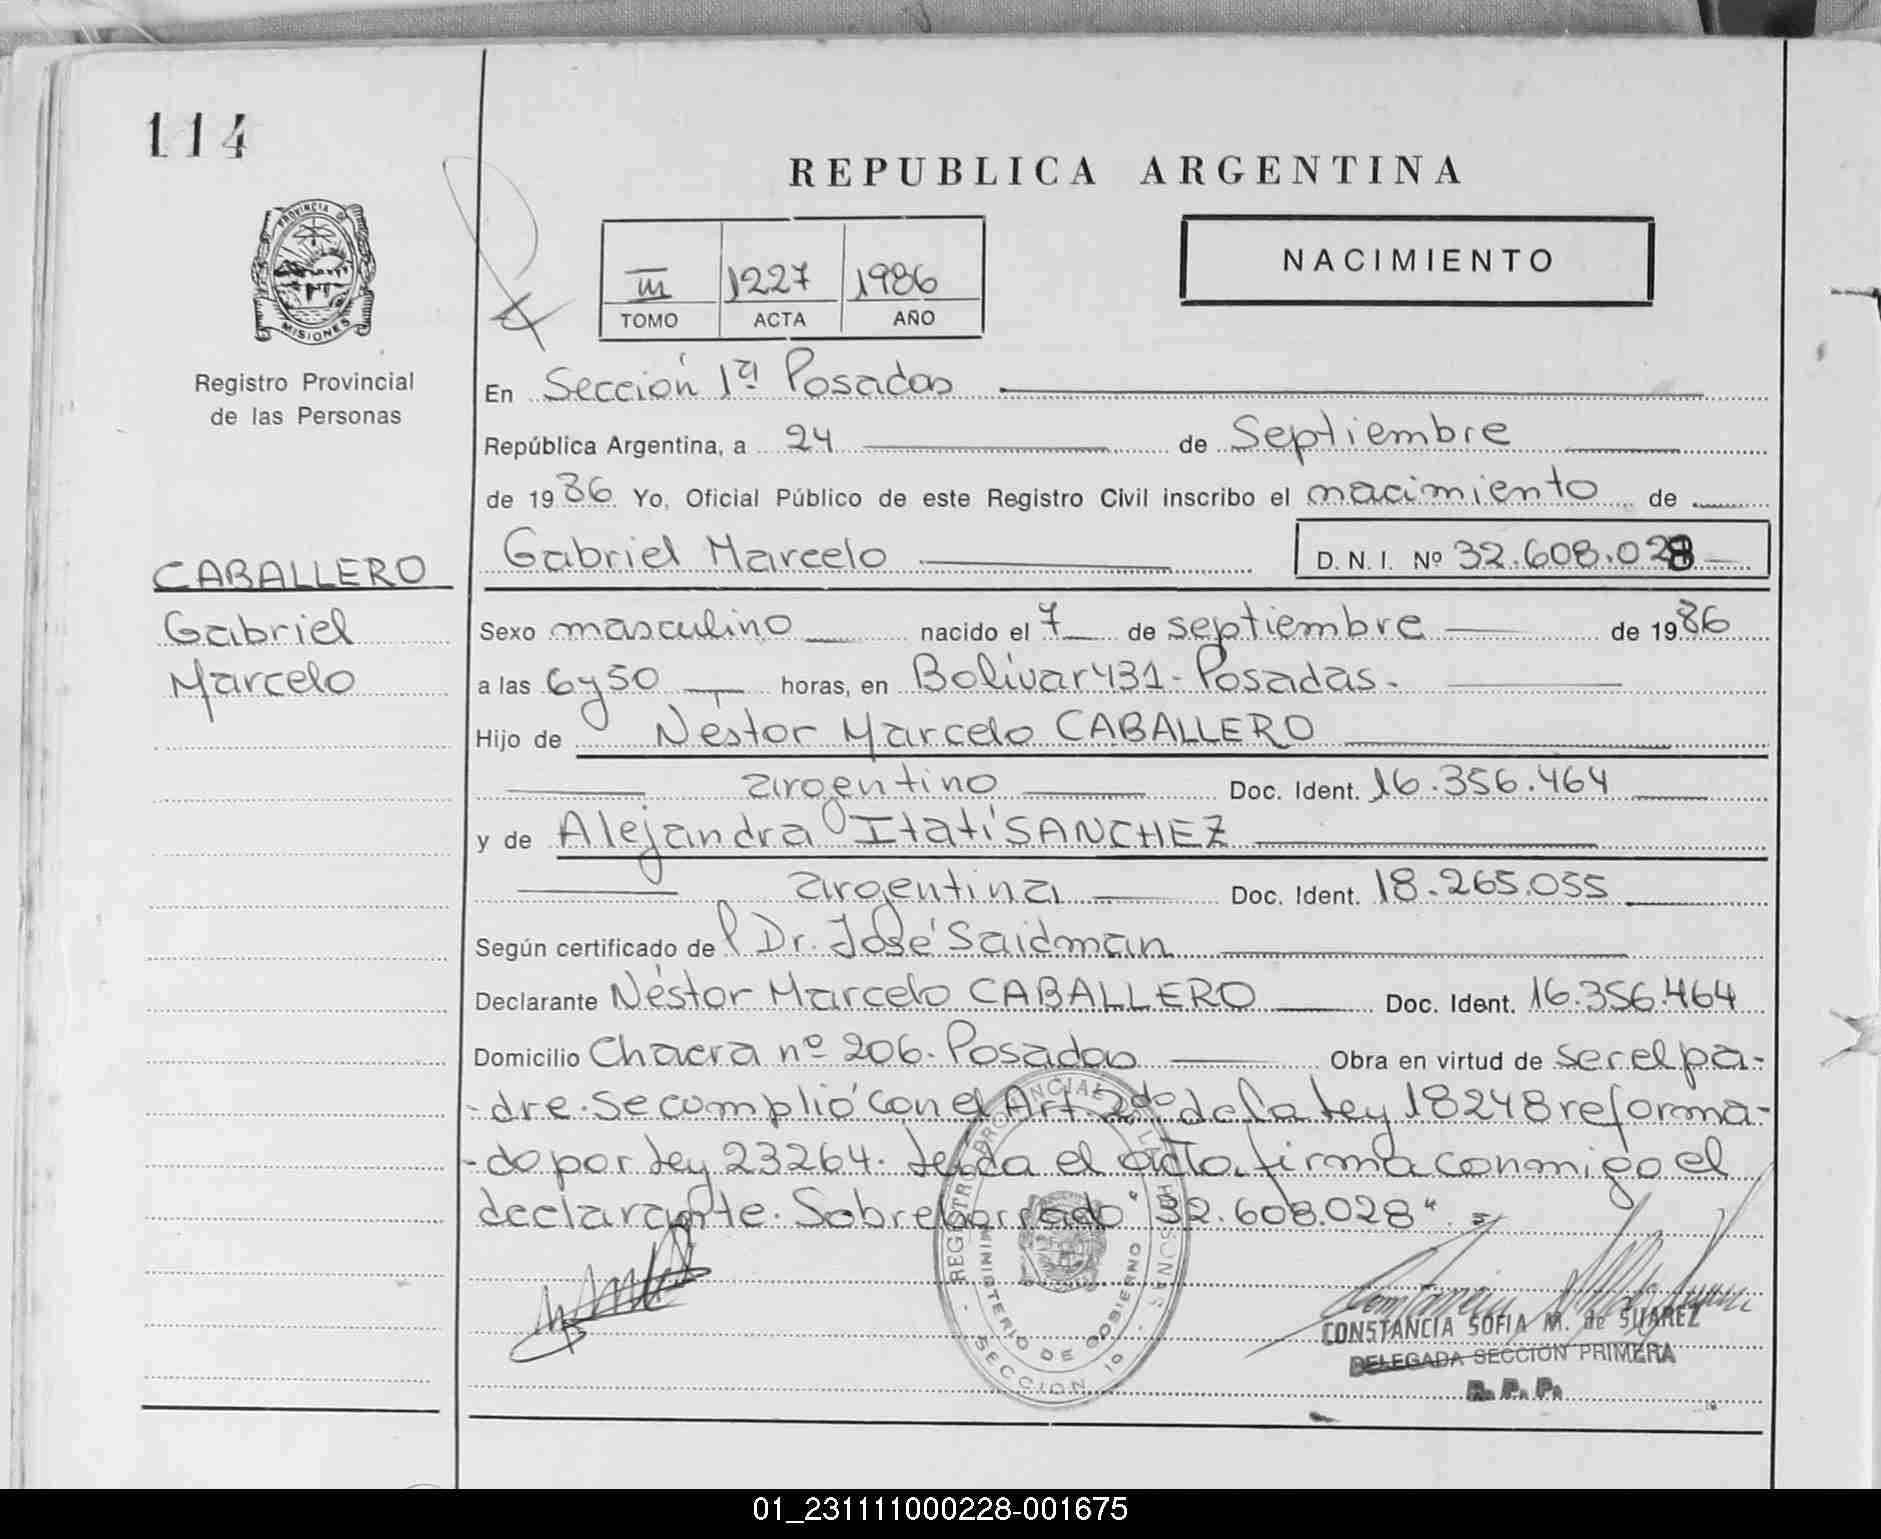 114
REPUBLICA ARGENTINA
PROVINCIA DE
MISIONES
Registro Provincial
de las Personas
III 1227 1986
TOMO ACTA AÑO
NACIMIENTO
En Sección 1ª Posadas
República Argentina, a 24 de Septiembre
de 1986 Yo, Oficial Público de este Registro Civil inscribo el nacimiento de
CABALLERO
Gabriel
Marcelo
Gabriel Marcelo D. N. I. Nº 32.608.028
Sexo masculino nacido el 7 de septiembre de 1986
a las 6 y 50 horas, en Bolívar 431 - Posadas.
Hijo de Néstor Marcelo CABALLERO
argentino Doc. Ident. 16.356.464
y de Alejandra Itatí SANCHEZ
argentina Doc. Ident. 18.265.055
Según certificado de l Dr. José Saidman
Declarante Néstor Marcelo CABALLERO Doc. Ident. 16.356.464
Domicilio Chacra nº 206. Posadas Obra en virtud de ser el pa-
-dre. Se cumplió con el Art. 2do de la Ley 18248 reforma-
-do por Ley 23264. Leída el acta, firma conmigo el
declarante. Sobreborrado "32.608.028".
REGISTRO PROVINCIAL DE LAS PERSONAS
MINISTERIO DE GOBIERNO
SECCION 1º
CONSTANCIA SOFIA M. de SUAREZ
DELEGADA SECCION PRIMERA
R. P. P.
01_231111000228-001675